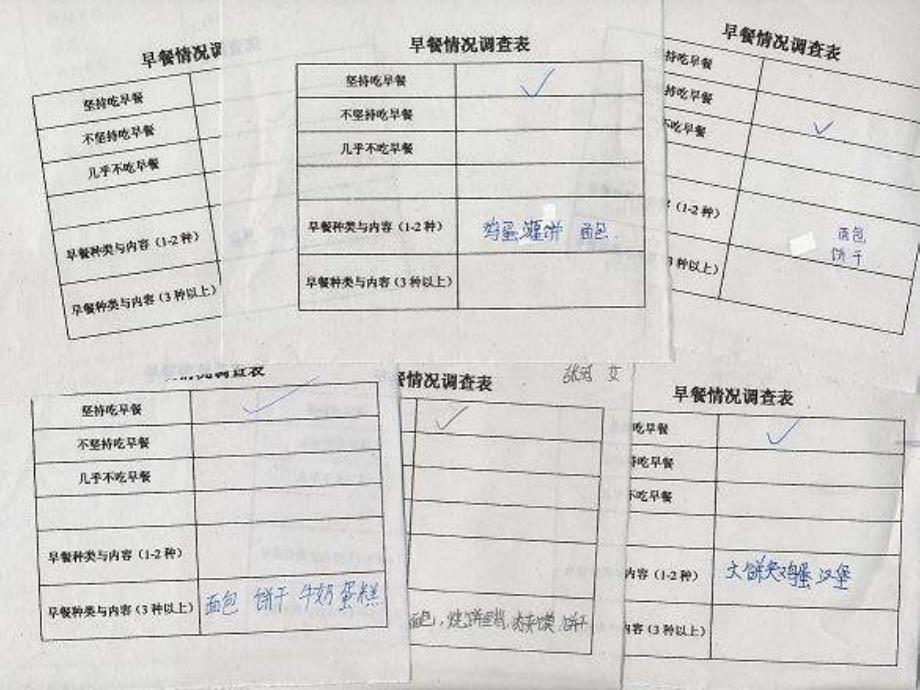 早餐情况调
坚持吃早餐
不坚持吃早餐
几乎不吃早餐
早餐种类与内容（1-2 种）
早餐种类与内容（3 种以上）
早餐情况调查表
坚持吃早餐
不坚持吃早餐
几乎不吃早餐
早餐种类与内容（1-2 种） 鸡蛋灌饼 面包
早餐种类与内容（3 种以上）
早餐情况调查表
持吃早餐
持吃早餐
不吃早餐
（1-2 种） 面包
饼干
3 种以上）
情况调查表
坚持吃早餐
不坚持吃早餐
几乎不吃早餐
早餐种类与内容（1-2 种）
早餐种类与内容（3 种以上） 面包 饼干 牛奶 蛋糕
餐情况调查表
面包，烧饼
饼干
早餐情况调查表
吃早餐
持吃早餐
不吃早餐
内容（1-2 种） 大饼夹鸡蛋 汉堡
内容（3 种以上）